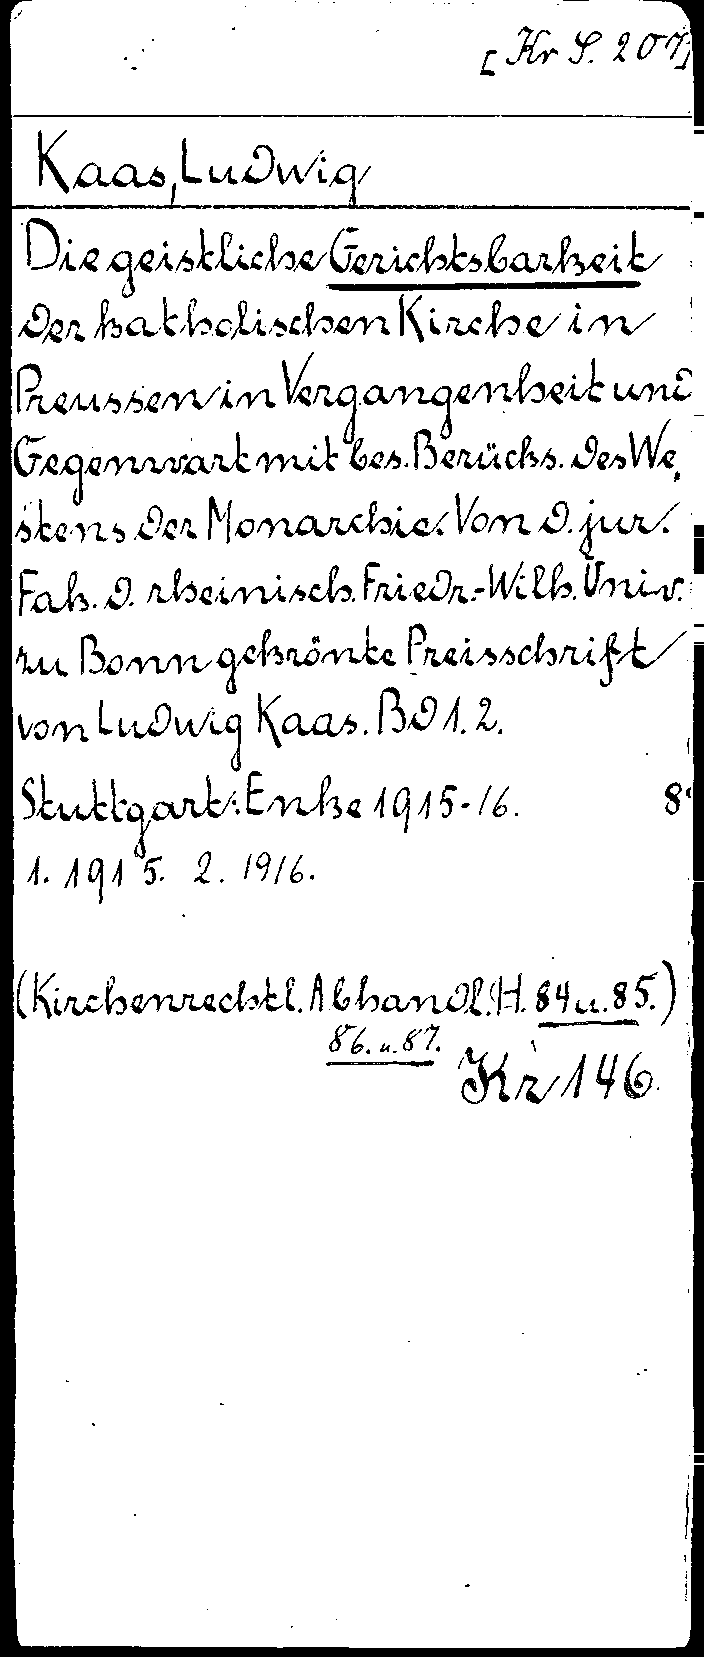 [Kr S. 207]
Kaas, Ludwig
Die geistliche Gerichtsbarkeit
der katholischen Kirche in
Preussen in Vergangenheit und
Gegenwart mit bes. Berücks. des We-
stens der Monarchie. Von d. jur.
Fak. d. rheinisch. Friedr.-Wilh. Univ.
zu Bonn gekrönte Preisschrift
von Ludwig Kaas. Bd 1. 2.
Stuttgart: Enke 1915-16. 8°
1. 1915. 2. 1916.
(Kirchenrechtl. Abhandl. H. 84 u. 85.)
86. u. 87.
Kr 146